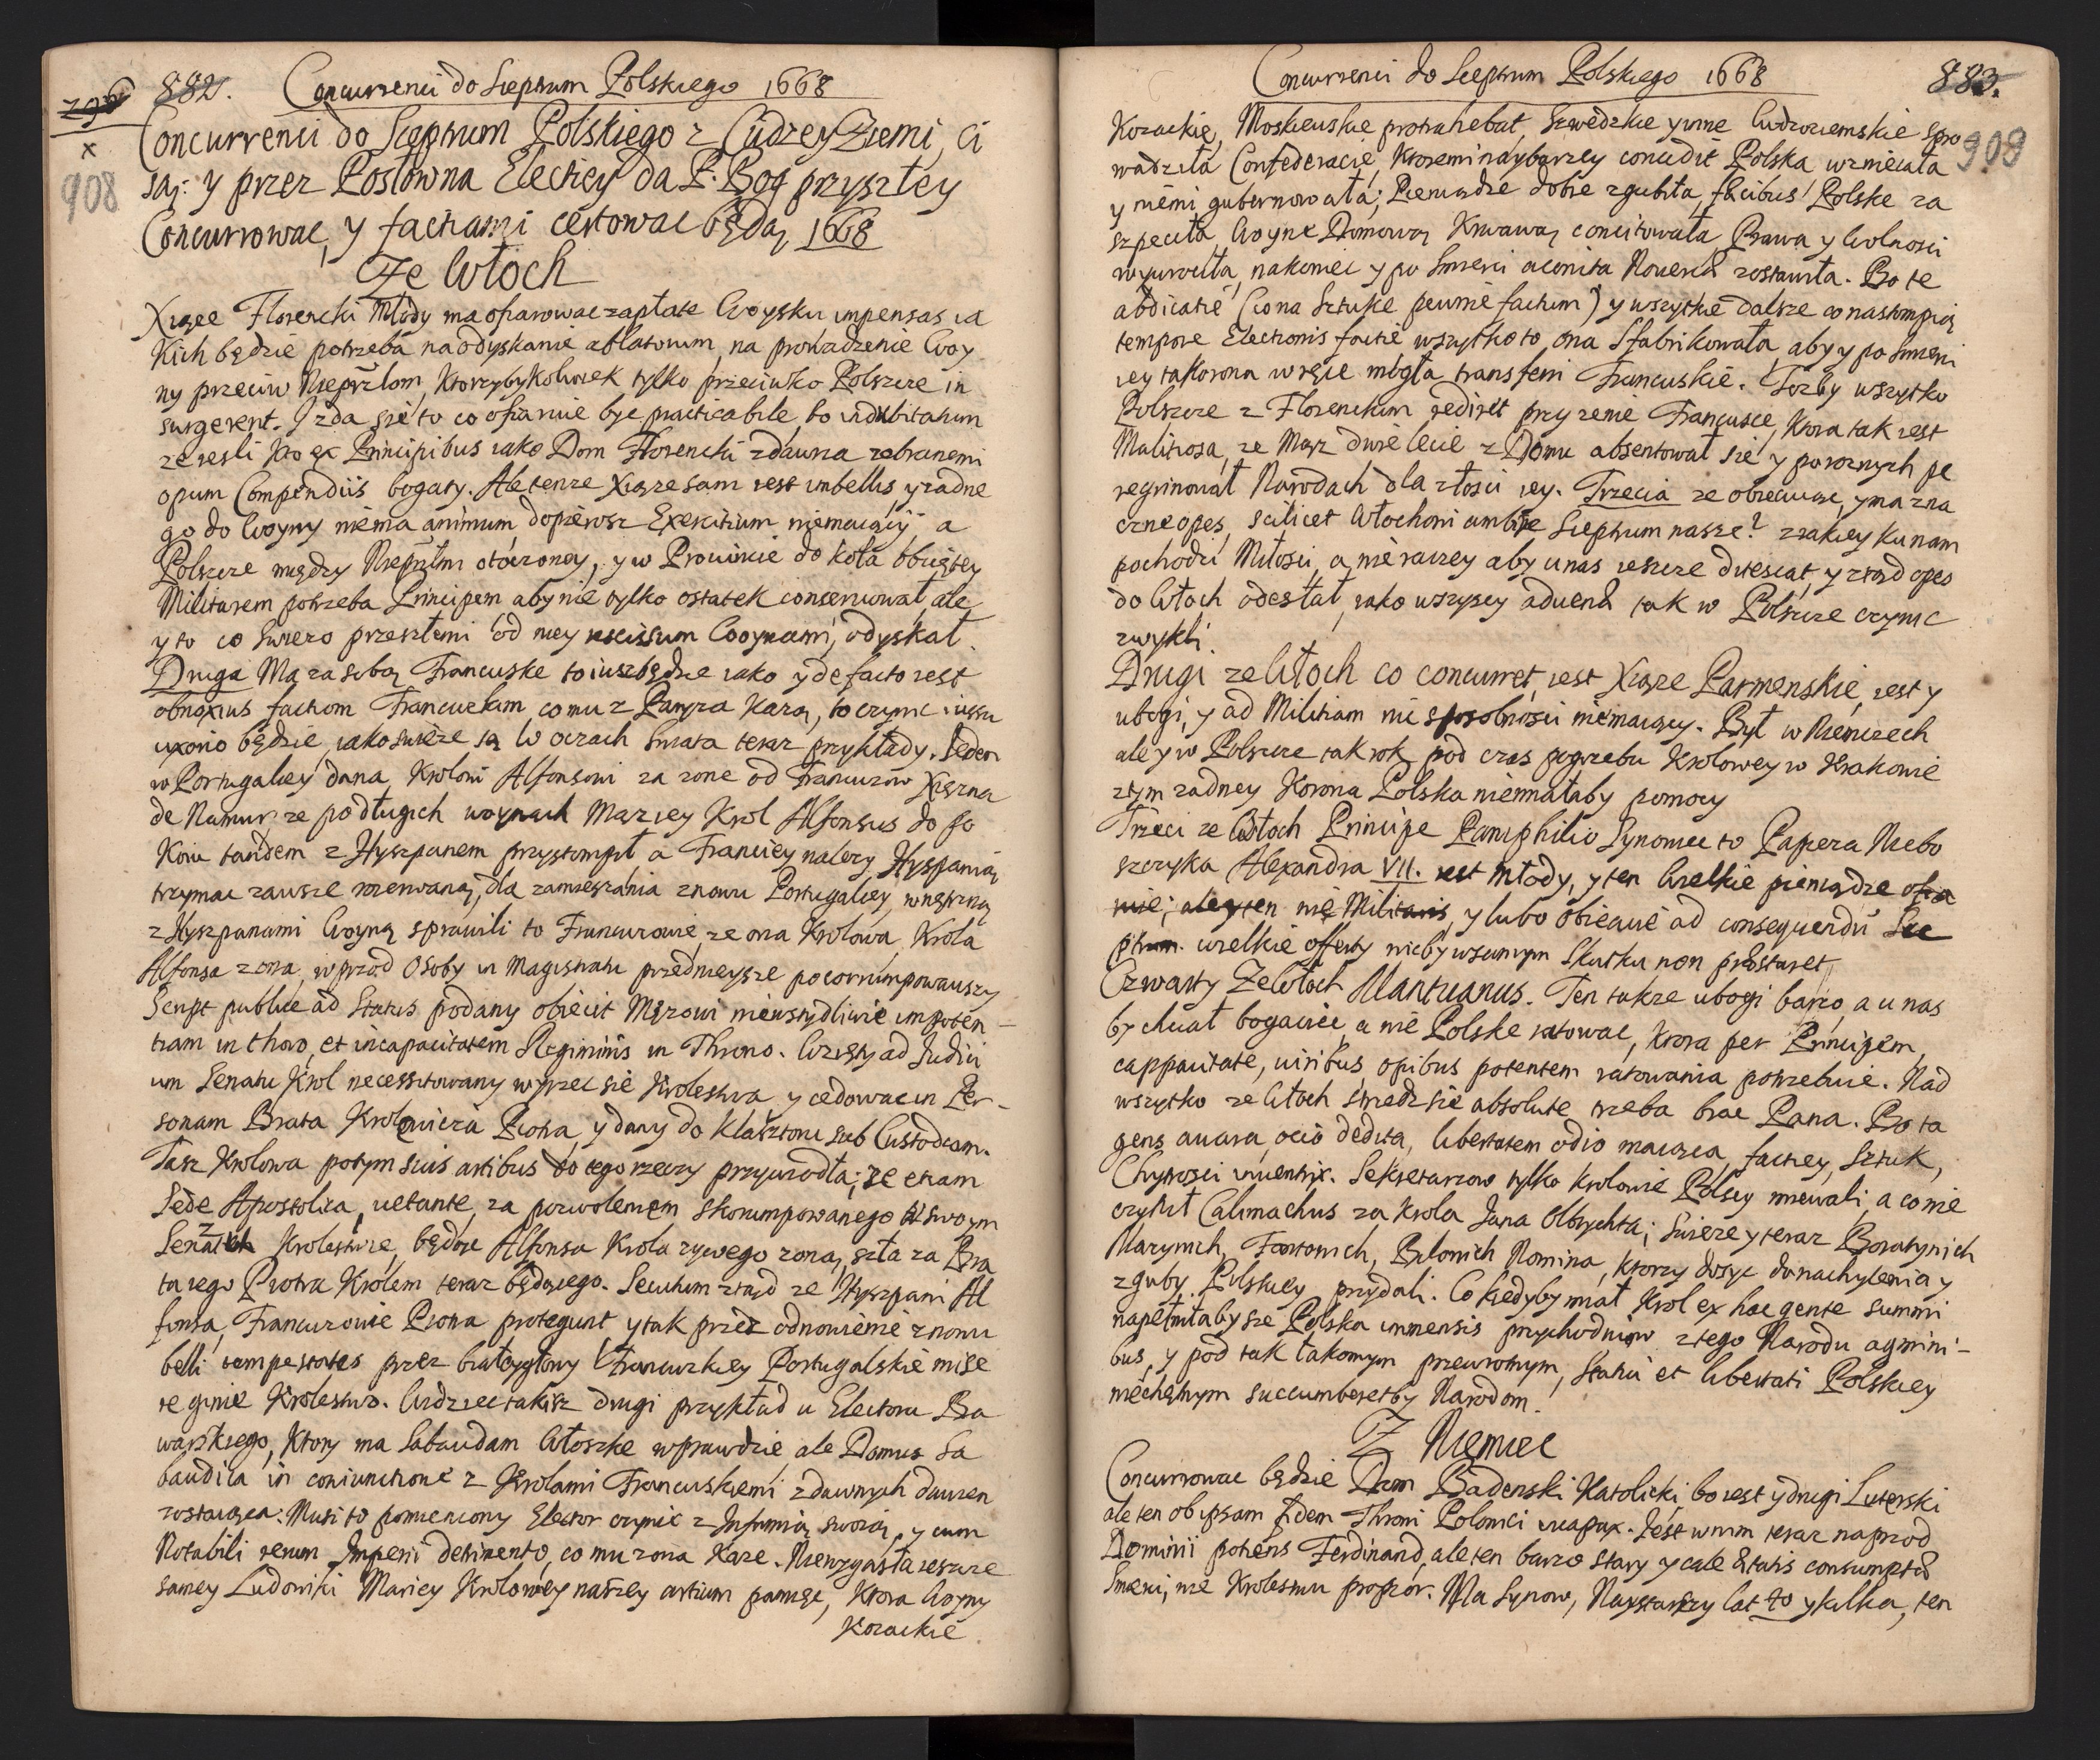 296
x
908
882. Concurrenci do Sceptrum Polskiego 1668
Concurrenci do Sceptrum Polskiego z Cudzey Ziemi, Ci
są: y przez Posłow na Elekcyey da P. Bog przyszłey
Concurrowac, y factiami certowac będą, 1668
Ze Włoch
Xiąże Florencki Młody ma ofiarowac zapłate Woysku, impensas ia
kich będzie potrzeba na odyskanie ablatorum, na prowadzenie Woy
ny przeciw Nieprzłom, Ktorzybykolwiek tylko przeciwko Polszcze in
surgerent. I zda się to co ofiaruie byc practicabile, bo indubitatum
ze iesli kto ex Principibus iako Dom Florencki zdawna zebranemi
opum Compendiis bogaty. Ale tenze Xiąze sam iest imbellis, y zadne
go do Woyny niema animum, dopierosz Exercitium niemaiący, a
Polszcze między Nieprzłmi otoczoney, y w Prowincie do koła obciętey
Militarem potrzeba Principem aby nie tylko ostatek conserwował, ale
y to co swiezo przeszłemi od niey rescissum Woynami, odyskał.
Druga Mą za sobą Francuske to iusz będzie iako y de facto iest
obnoxius factiom Francuskim, co mu z Paryza Karą, to czynic iussu
uxorio będzie, iako swieże są w oczach Swiata teraz przykłady. Ieden
w Portugaliey dana Krolowi Alfonsowi za zone od Francuzow Xięzna
de Namur, ze po długich woynach Mąz iey Krol Alfonsus do po
Koiu tandem z Hyszpanem przystompił a Franciey nalezy, Hyspanią
trzymac zawsze rozerwaną, dla zamieszania znowu Portugaliey wnętrzną
z Hyszpanami Woyną sprawili to Francuzowie, ze ona Krolowa, Krola
Alfonsa zona, wprzod Osoby in Magistratu przednieysze pocorrumpowawszy
Script publice ad Status podany obiecit Mężowi niewstydliwie impoten-
tiam in thoro, et incapacitatem Regiminis in Throno. Wzięty ad Iudici
um Senatu Krol necessitowany wyrzec się Krolestwa y cedowac in Per-
sonam Brata Krolewicza Piotra, y dany do Klasztoru sub Custodiam.
Tasz Krolowa potym suis artibus do tego rzeczy przywiodła; ze etiam
Sede Apostolica, uetante, za pozwoleniem skorumpowanego w swoym
Senatu Krolestwie, będąc Alfonsa Krola zywego zoną, szła za Bra
ta iego Piotra Krolem teraz będącego. Secutum ztąd ze Hyszpani Al
fonsa, Francuzowie Piotra protegunt y tak przez odnowienie znowu
belli tempestates przez białogłowy Francuzkiey Portugalskie mise
re ginie Krolestwo. Widziec takisz drugi przykład u Electora Ba
warskiego, Ktory ma Sabaudam Włoszke wprawdzie, ale Domus Sa
baudica in coniunctione z Krolami Francuskiemi zdawnych dawien
zostaiąca. Musi to pomieniony Elector czynic z Infamią swoią, y cum
Notabili rerum Imperii detrimento, co mu zona Kaze. Niewygasła ieszcze
samey Ludowiki Mariey Krolowey naszey artium pamięc, Ktora Woyny
Kozackie
Concurrenci do Sceptrum Polskiego 1668 883.
909
Kozackie, Moskiewskie protrahebat, Szwedzkie y inne Cudzoziemskie spro
wadziła Confederacie, Ktoremi naybarzey concidit Polska wzniecała
y niemi gubernowała; Pieniądze dobre zgubiła, fucibus Polske za
szpeciła, Woyne Domową Krwawą concitowała Prawa y Wolnosci
wywrociła, nakoniec y po Smierci aconita Nouerca zostawiła. Bo te
abdicatie (iona Sztuke pewnie factum) y wszytkie dalsze co nastompią
tempore Electionis factie wszytko to ona sfabrikowała, aby y po smierci
iey takorona w ręce mogła transferri Francuskie. Tozby wszytko
Polszcze z Florenckim rediret przy zenie Francusce, Ktora tak iest
Malitiosa, ze Mąz dwie lecie z Domu absentował się y po roznych pe
regrinował Narodach dla złosci iey. Trzecia ze obiecuiąc, y ma zna
czne opes, scilicet Włochowi ambire Sceptrum nasze? z iakiey ku nam
pochodzi Miłosci, a nie raczey aby u nas ieszcze dwiescat, y ztąd opes
do Włoch odesłał, iako wszyscy aduenae tak w Polszcze czynic
zwykli.
Drugi ze Włoch co concurret, iest Xiąze Parmenskie, iest y
ubogi, y ad Militiam nic sposobnosci niemaiący. Był w Niemczech
ale y w Polszcze tak rok, pod czas pogrzebu Krolowey w Krakowie
z tym zadney Korona Polska niemiałaby pomocy
Trzeci ze Włoch Principe Pamphilio Synowiec to Papieza Niebo
szczyka Alexandra VII. iest młody, y ten Wielkie pieniądze ofia
ruie; ale y ten nie Militaris, y lubo obiecuie ad consequendū Sce
ptrum wielkie offerty nicby w samym Skutku non praestaret,
Czwarty Ze Włoch Mantuanus. Ten takze ubogi barzo, a u nas
by chciał bogaciec, a nie Polske ratowac, Ktora per Principem,
cappacitate, uiribus, opibus potentem ratowania potrzebuie. Nad
wszytko ze Włoch strzedz się absolute trzeba brac Pana. Bo ta
gens auara, ocio dedita, libertatem odio maiąca, factiey, Sztuk,
Chytrosci inuentrix. Sekretarzow tylko Krolowie Polscy miewali, a co nie
czynił Calimachus za Krola Jana Olbrychta; Swieze y teraz Boratynich
Marynich, Bilonich Nomina, ktorzy dosyc do nachylenia y
zguby Polskiey przydali. Co kiedyby miał Krol ex hac gente summi
napełniłaby sie Polska immensis przychodniow z tego Narodu agmini-
bus, y pod tak łakomym przewrotnym, Statui et libertati Polskiey
niechętnym succumberetby Narodom.
Z Niemiec
Concurrowac będzie Dom Badenski Katolicki, bo iest y drugi Luterski
ale ten ob ipsam fidem Throni Polonici incapax. Iest w nim teraz naprzod
Dominii potens Ferdinand, ale ten barzo stary y cale aetatis consumptae
Smierci, nie Krolestwu propior. Ma Synow, Naystarszy lat 40 y kilka, ten